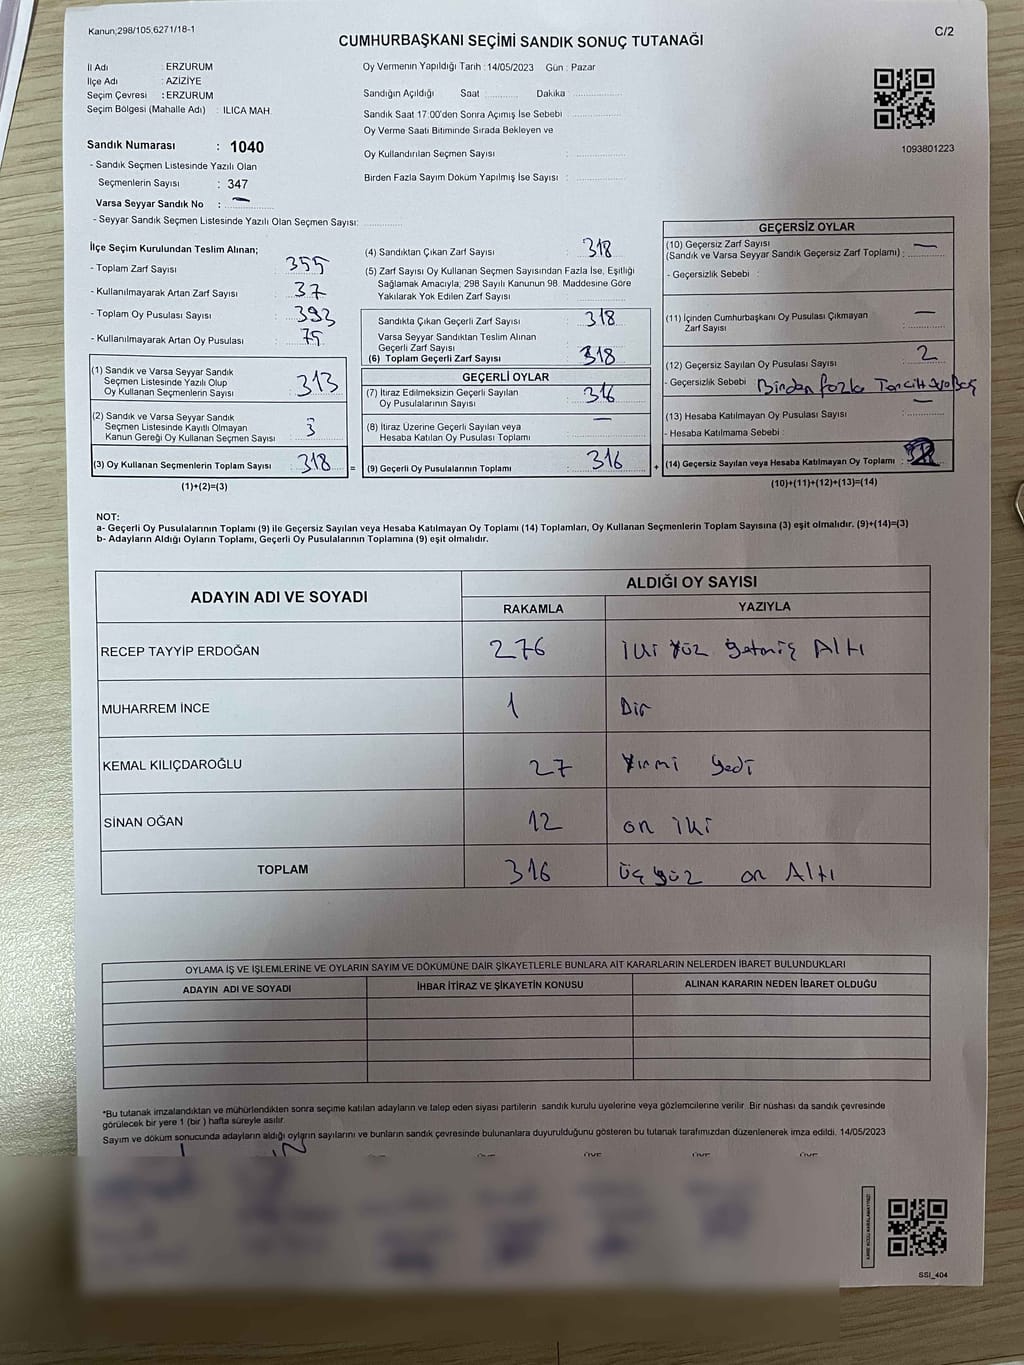 Kanun;298/105,6271/18-1
C/2
CUMHURBAŞKANI SEÇİMİ SANDIK SONUÇ TUTANAĞI
İl Adı : ERZURUM
İlçe Adı : AZİZİYE
Seçim Çevresi : ERZURUM
Seçim Bölgesi (Mahalle Adı) : ILICA MAH.
Oy Vermenin Yapıldığı Tarih : 14/05/2023 Gün : Pazar
Sandığın Açıldığı Saat Dakika
Sandık Saat 17:00'den Sonra Açımış İse Sebebi
Oy Verme Saati Bitiminde Sırada Bekleyen ve
Oy Kullandırılan Seçmen Sayısı :
Birden Fazla Sayım Döküm Yapılmış İse Sayısı :
1093801223
Sandık Numarası : 1040
- Sandık Seçmen Listesinde Yazılı Olan
Seçmenlerin Sayısı : 347
Varsa Seyyar Sandık No : —
- Seyyar Sandık Seçmen Listesinde Yazılı Olan Seçmen Sayısı:
İlçe Seçim Kurulundan Teslim Alınan;
- Toplam Zarf Sayısı : 355
- Kullanılmayarak Artan Zarf Sayısı : 37
- Toplam Oy Pusulası Sayısı : 393
- Kullanılmayarak Artan Oy Pusulası : 75
(1) Sandık ve Varsa Seyyar Sandık
Seçmen Listesinde Yazılı Olup
Oy Kullanan Seçmenlerin Sayısı : 313
(2) Sandık ve Varsa Seyyar Sandık
Seçmen Listesinde Kayıtlı Olmayan
Kanun Gereği Oy Kullanan Seçmen Sayısı : 3
(3) Oy Kullanan Seçmenlerin Toplam Sayısı : 318 =
(1)+(2)=(3)
(4) Sandıktan Çıkan Zarf Sayısı : 318
(5) Zarf Sayısı Oy Kullanan Seçmen Sayısından Fazla İse, Eşitliği
Sağlamak Amacıyla; 298 Sayılı Kanunun 98. Maddesine Göre
Yakılarak Yok Edilen Zarf Sayısı
Sandıkta Çıkan Geçerli Zarf Sayısı : 318
Varsa Seyyar Sandıktan Teslim Alınan
Geçerli Zarf Sayısı
(6) Toplam Geçerli Zarf Sayısı : 318
GEÇERLİ OYLAR
(7) İtiraz Edilmeksizin Geçerli Sayılan
Oy Pusulalarının Sayısı : 316
(8) İtiraz Üzerine Geçerli Sayılan veya
Hesaba Katılan Oy Pusulası Toplamı : —
(9) Geçerli Oy Pusulalarının Toplamı : 316 +
GEÇERSİZ OYLAR
(10) Geçersiz Zarf Sayısı
(Sandık ve Varsa Seyyar Sandık Geçersiz Zarf Toplamı) : —
- Geçersizlik Sebebi :
(11) İçinden Cumhurbaşkanı Oy Pusulası Çıkmayan
Zarf Sayısı : —
(12) Geçersiz Sayılan Oy Pusulası Sayısı : 2
- Geçersizlik Sebebi : Birden fazla Tercih
(13) Hesaba Katılmayan Oy Pusulası Sayısı : —
- Hesaba Katılmama Sebebi :
(14) Geçersiz Sayılan veya Hesaba Katılmayan Oy Toplamı : 2
(10)+(11)+(12)+(13)=(14)
NOT:
a- Geçerli Oy Pusulalarının Toplamı (9) ile Geçersiz Sayılan veya Hesaba Katılmayan Oy Toplamı (14) Toplamları, Oy Kullanan Seçmenlerin Toplam Sayısına (3) eşit olmalıdır. (9)+(14)=(3)
b- Adayların Aldığı Oyların Toplamı, Geçerli Oy Pusulalarının Toplamına (9) eşit olmalıdır.
ADAYIN ADI VE SOYADI
ALDIĞI OY SAYISI
RAKAMLA YAZIYLA
RECEP TAYYİP ERDOĞAN 276 iki Yüz Yetmiş Altı
MUHARREM İNCE 1 Bir
KEMAL KILIÇDAROĞLU 27 Yirmi Yedi
SİNAN OĞAN 12 on iki
TOPLAM 316 üç yüz on Altı
OYLAMA İŞ VE İŞLEMLERİNE VE OYLARIN SAYIM VE DÖKÜMÜNE DAİR ŞİKAYETLERLE BUNLARA AİT KARARLARIN NELERDEN İBARET BULUNDUKLARI
ADAYIN ADI VE SOYADI İHBAR İTİRAZ VE ŞİKAYETİN KONUSU ALINAN KARARIN NEDEN İBARET OLDUĞU
*Bu tutanak imzalandıktan ve mühürlendikten sonra seçime katılan adayların ve talep eden siyasi partilerin sandık kurulu üyelerine veya gözlemcilerine verilir. Bir nüshası da sandık çevresinde
görülecek bir yere 1 (bir ) hafta süreyle asılır.
Sayım ve döküm sonucunda adayların aldığı oyların sayılarını ve bunların sandık çevresinde bulunanlara duyurulduğunu gösteren bu tutanak tarafımızdan düzenlenerek imza edildi. 14/05/2023
SSI_404